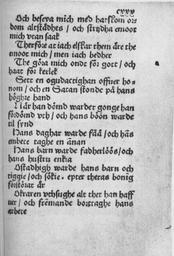 cxxv
Och beleva mich med hatskom ord
som alstädhes / och strydha emoot
mich vtan saak
Therföre at iach elskar them äre the
emoot mich / men iach bedher
The göra mich ondt för gott / och
haat för kerlek
Sett en ogudactighan offuer ho=
nom / och en Satan stonde på hans
höghre hand
När han dömd warder gonge han
fördömd vth / och hans böön warde
til synd
Hans daghar warde fåå / och häs
embete taghe en änan
Hans barn warde fadherlööß / och
hans hustru enkia
Ostadhigh warde hans barn och
tiggie / och sökie, epter theras bonig
förstörat är
Okraren vthsughe alt ther han haff
uer / och fremande borttaghe hans
erbete